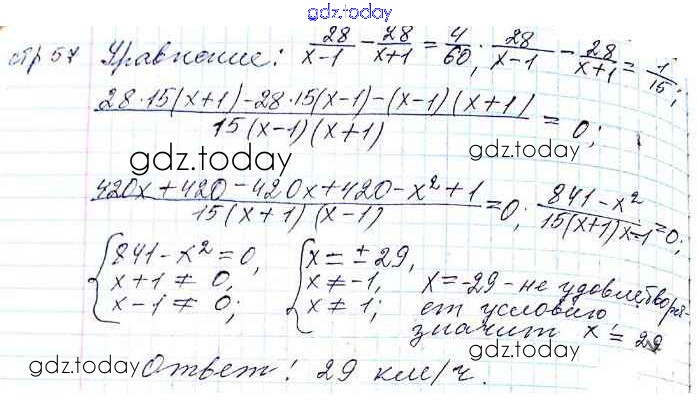 gdz.today
стр 57 Уравнение: 28/x-1 - 28/x+1 = 4/60; 28/x-1 - 28/x+1 = 1/15;
28·15(x+1)-28·15(x-1)-(x-1)(x+1)/15(x-1)(x+1) = 0;
gdz.today gdz.today
420x+420-420x+420-x²+1/15(x+1)(x-1) = 0; 841-x²/15(x+1)x-1 = 0;
{841-x²=0, {x=±29,
x+1≠0, x≠-1, x=-29 - не удовлетворя-
x-1≠0; x≠1; ет условию
значит x=29
gdz.today gdz.today
Ответ: 29 км/ч.